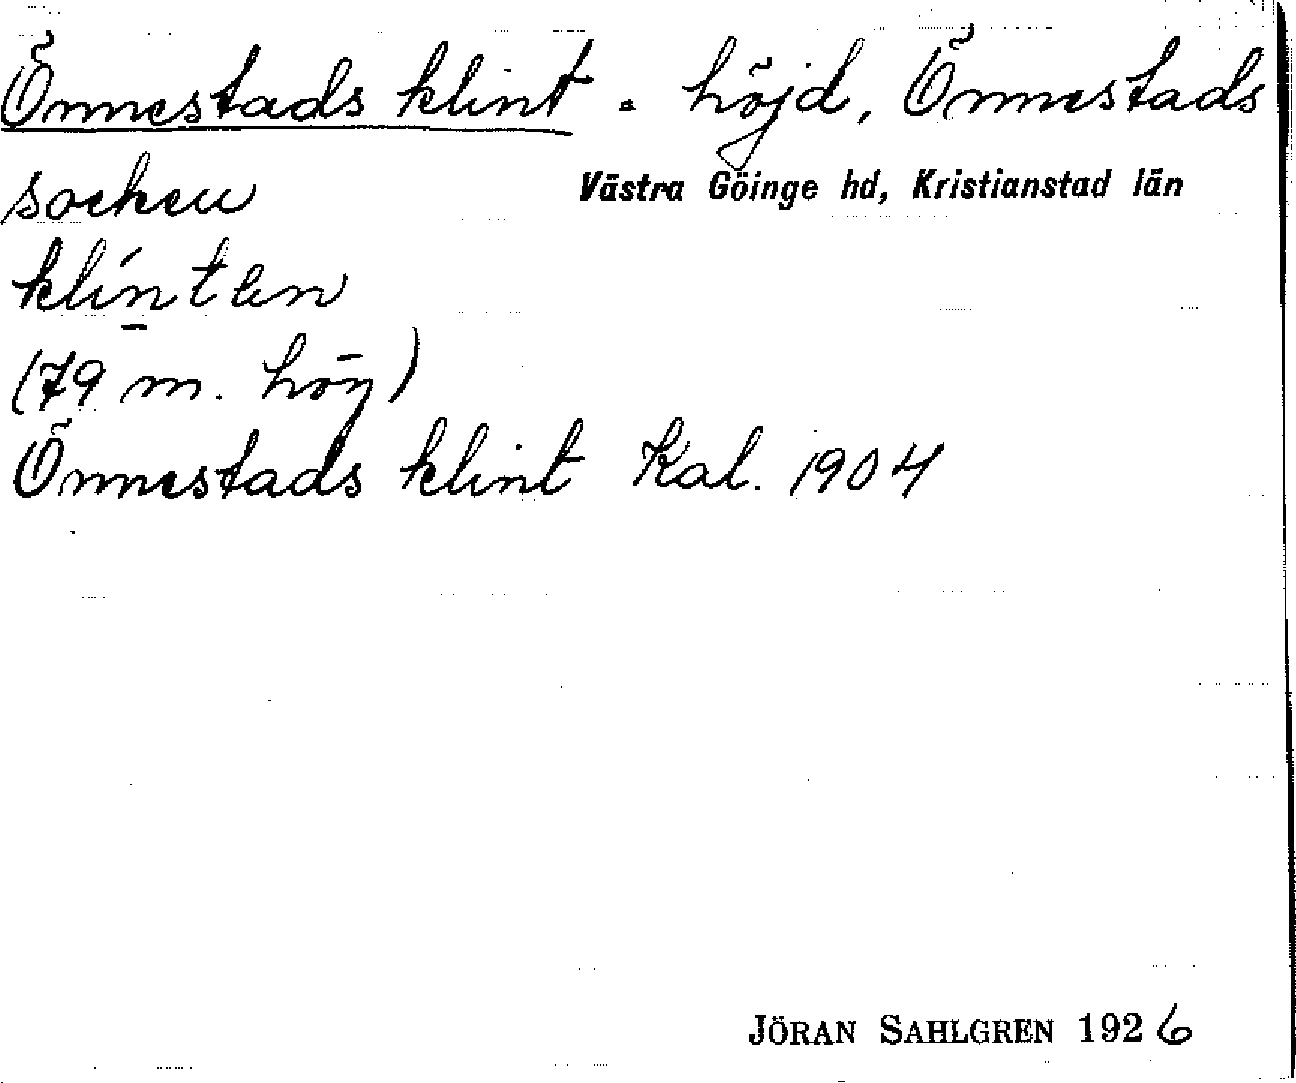 Önnestads klint. höjd, Önnestads
socken Västra Göinge hd, Kristianstad län
klíntən
(79 m. hög)
Önnestads klint Kal. 1904
JÖRAN SAHLGREN 1926